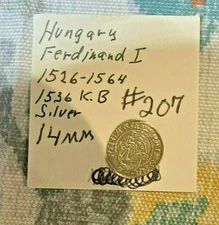 Hungary
Ferdinand I
1526-1564
1536 K.B
#207
Silver
14mm